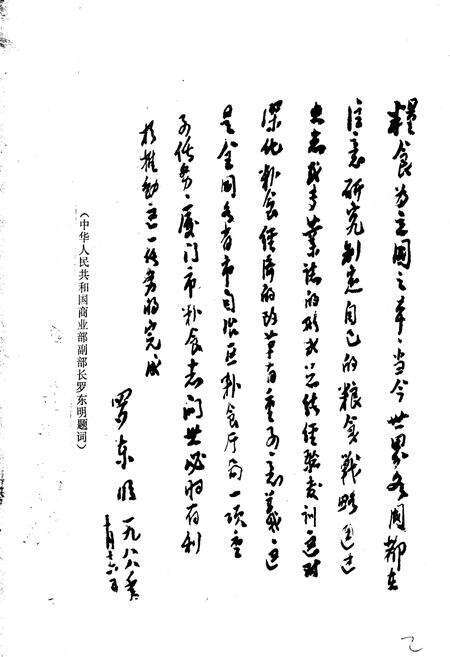 粮食为立国之本，当今世界各国都在
注意研究制定自己的粮食战略通过
出志或专业志的形式总结经验教训这对
深化粮食经济的改革有重要意义这
是全国各省市自治区粮食厅局一项重
要任务，厦门市粮食志问世必将有利
于推动这一任务的完成
罗东明 一九八八年
十月十六日
（中华人民共和国商业部副部长罗东明题词）
2